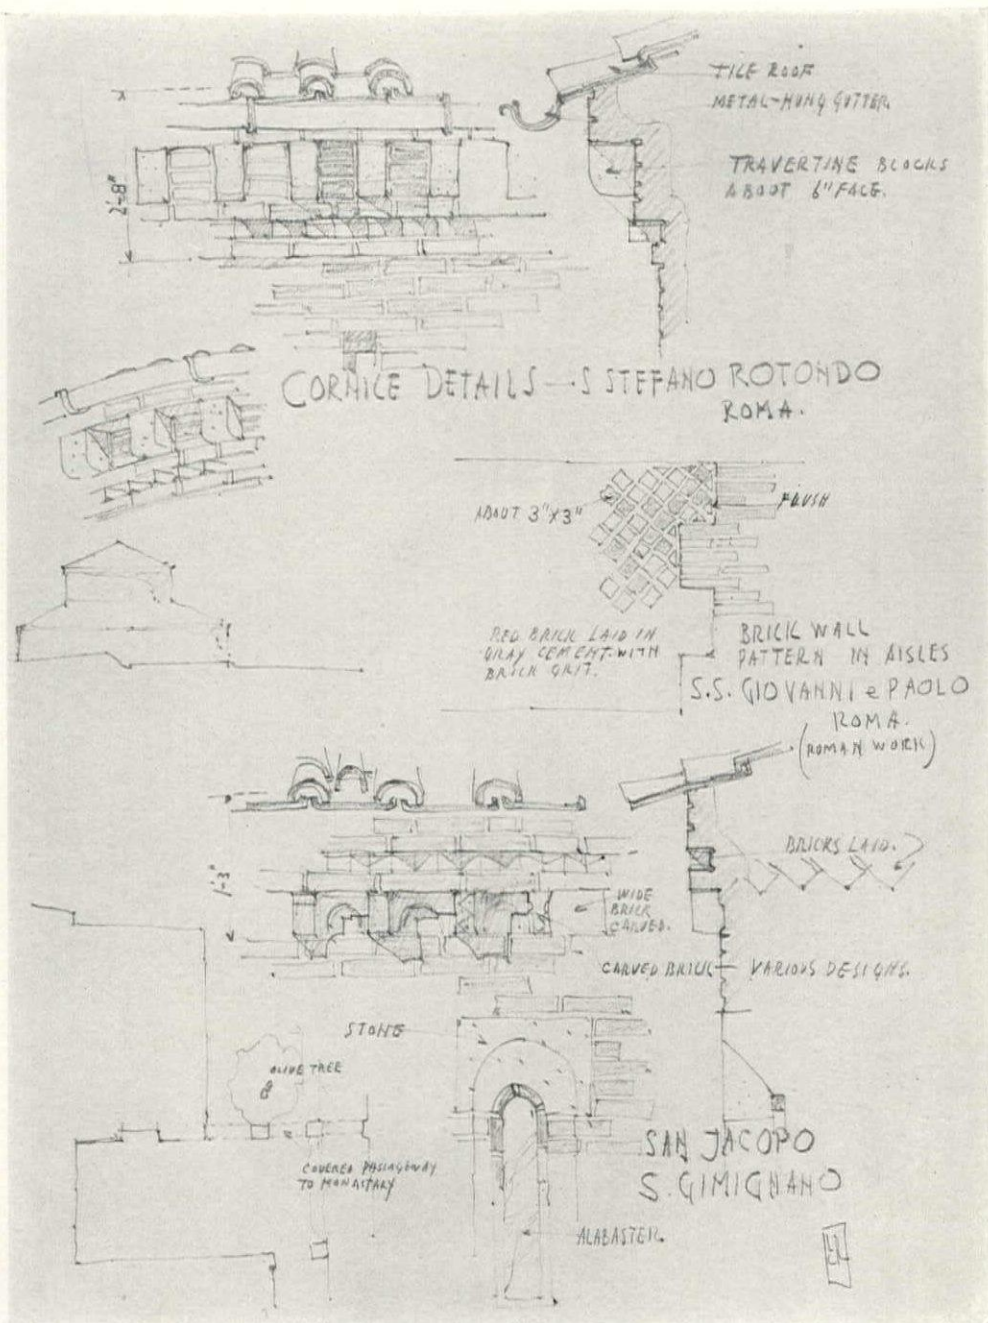 TILE ROOF
METAL-HUNG GUTTER.
TRAVERTINE BLOCKS
ABOUT 6" FACE.
2'-8"
CORNICE DETAILS — S STEFANO ROTONDO
ROMA.
ABOUT 3"X3"
FLUSH
RED BRICK LAID IN
GRAY CEMENT WITH
BRICK GRIT.
BRICK WALL
PATTERN IN AISLES
S.S. GIOVANNI e PAOLO
ROMA.
(ROMAN WORK)
BRICKS LAID.
1'-3"
WIDE
BRICK
CARVED.
CARVED BRICK — VARIOUS DESIGNS.
STONE
OLIVE TREE
COVERED PASSAGEWAY
TO MONASTARY
SAN JACOPO
S. GIMIGNANO
ALABASTER.